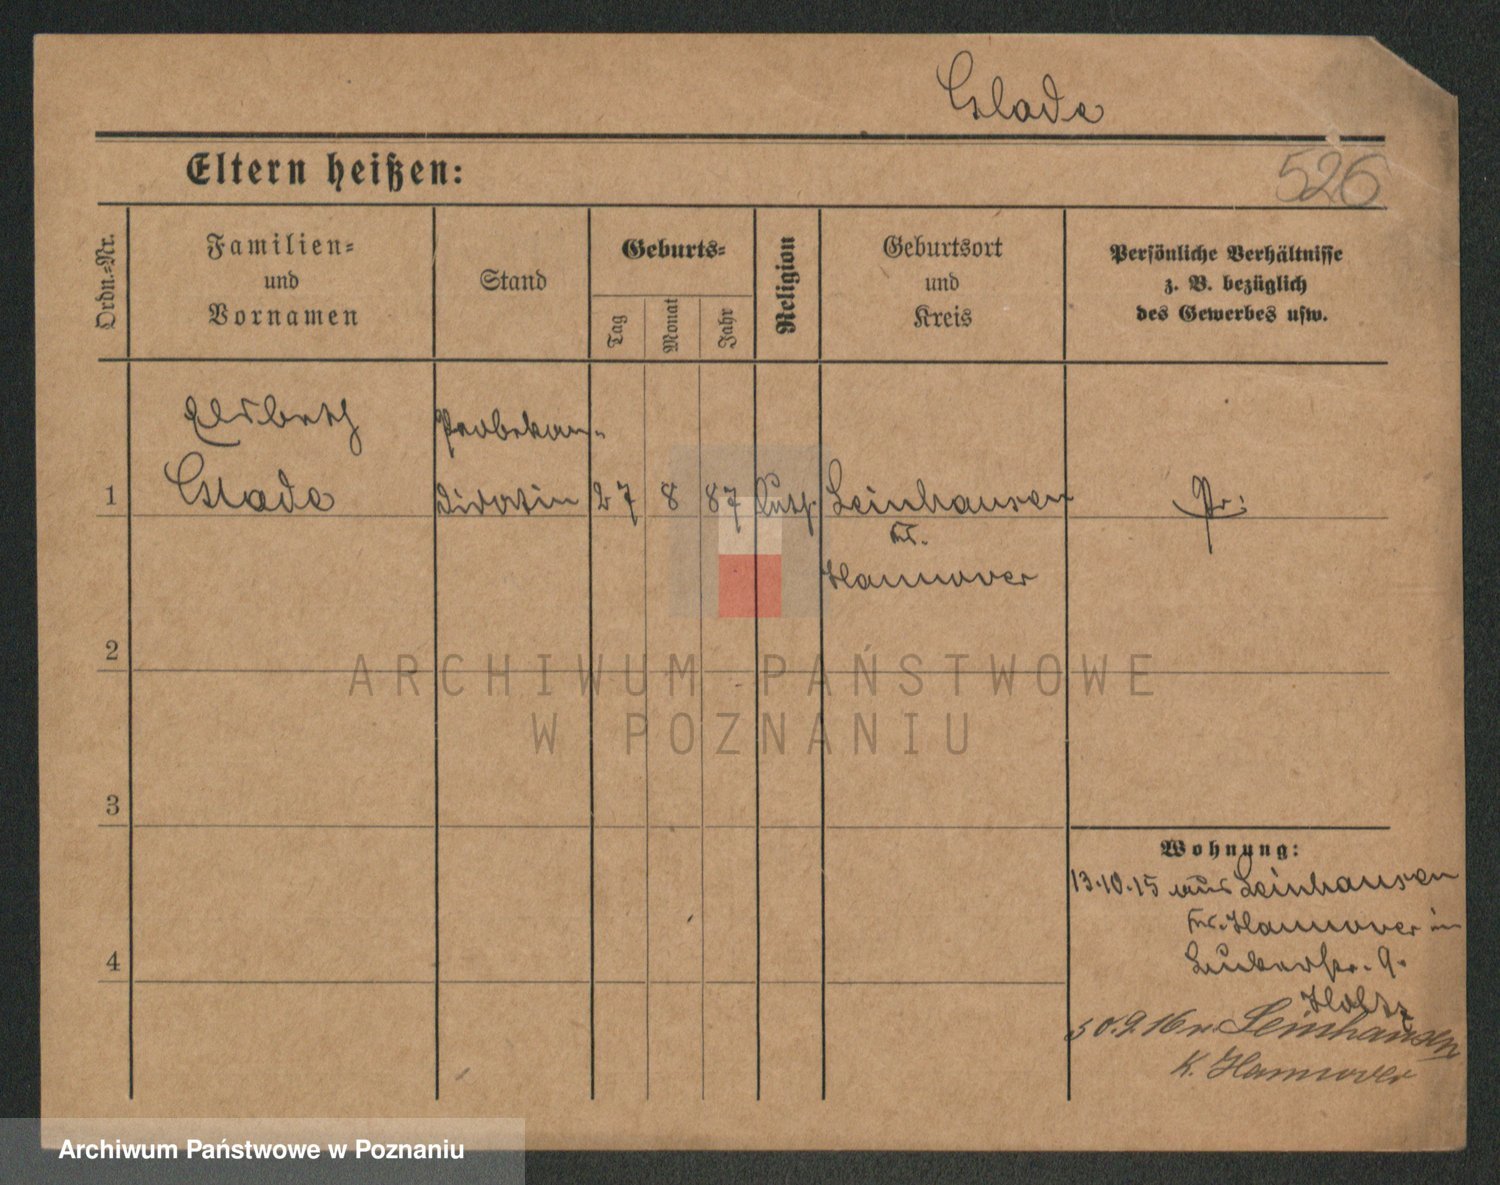 Glade
Eltern heißen:
526
Ordn.=Nr.
Familien=
und
Vornamen
Stand
Geburts=
Tag
Monat
Jahr
Religion
Geburtsort
und
Kreis
Persönliche Verhältnisse
z. B. bezüglich
des Gewerbes usw.
Elsbeth
Glade
Probekan-
didatin
1
27
8
87
Luth.
Leinhausen
Kr.
Hannover
Pr.
2
ARCHIWUM PAŃSTWOWE
W POZNANIU
3
Wohnung:
13.10.15 aus Leinhausen
Kr. Hannover in
9.
4
30.9.16 n. Leinhausen
K. Hannover
Archiwum Państwowe w Poznaniu